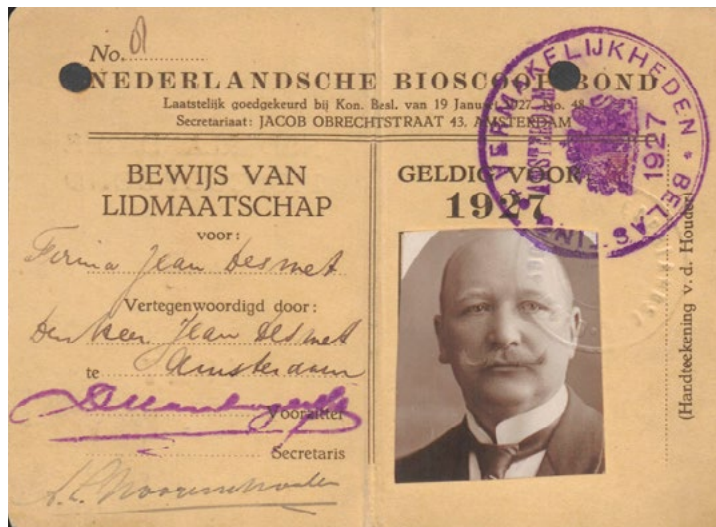 No. 8
NEDERLANDSCHE BIOSCOOP-BOND
Laatstelijk goedgekeurd bij Kon. Besl. van 19 Januari 1927, No. 48
Secretariaat: JACOB OBRECHTSTRAAT 43, AMSTERDAM
BEWIJS VAN
LIDMAATSCHAP
voor:
Firma Jean Desmet
Vertegenwoordigd door:
den heer Jean Desmet
te Amsterdam
Voorzitter
Secretaris
GELDIG VOOR
1927
VERMAKELIJKHEDEN * BELASTING
AMSTERDAM
1927
(Handteekening v. d. Houder)